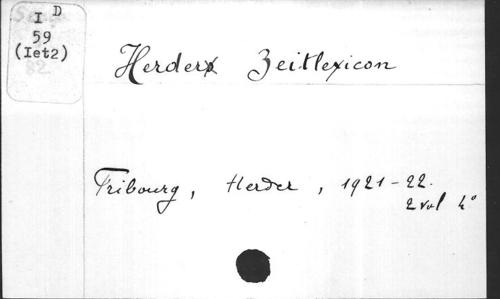 I D
59
(Iet2)
Herders Zeitlexicon
Fribourg, Herder, 1921-22.
2 vol 4°